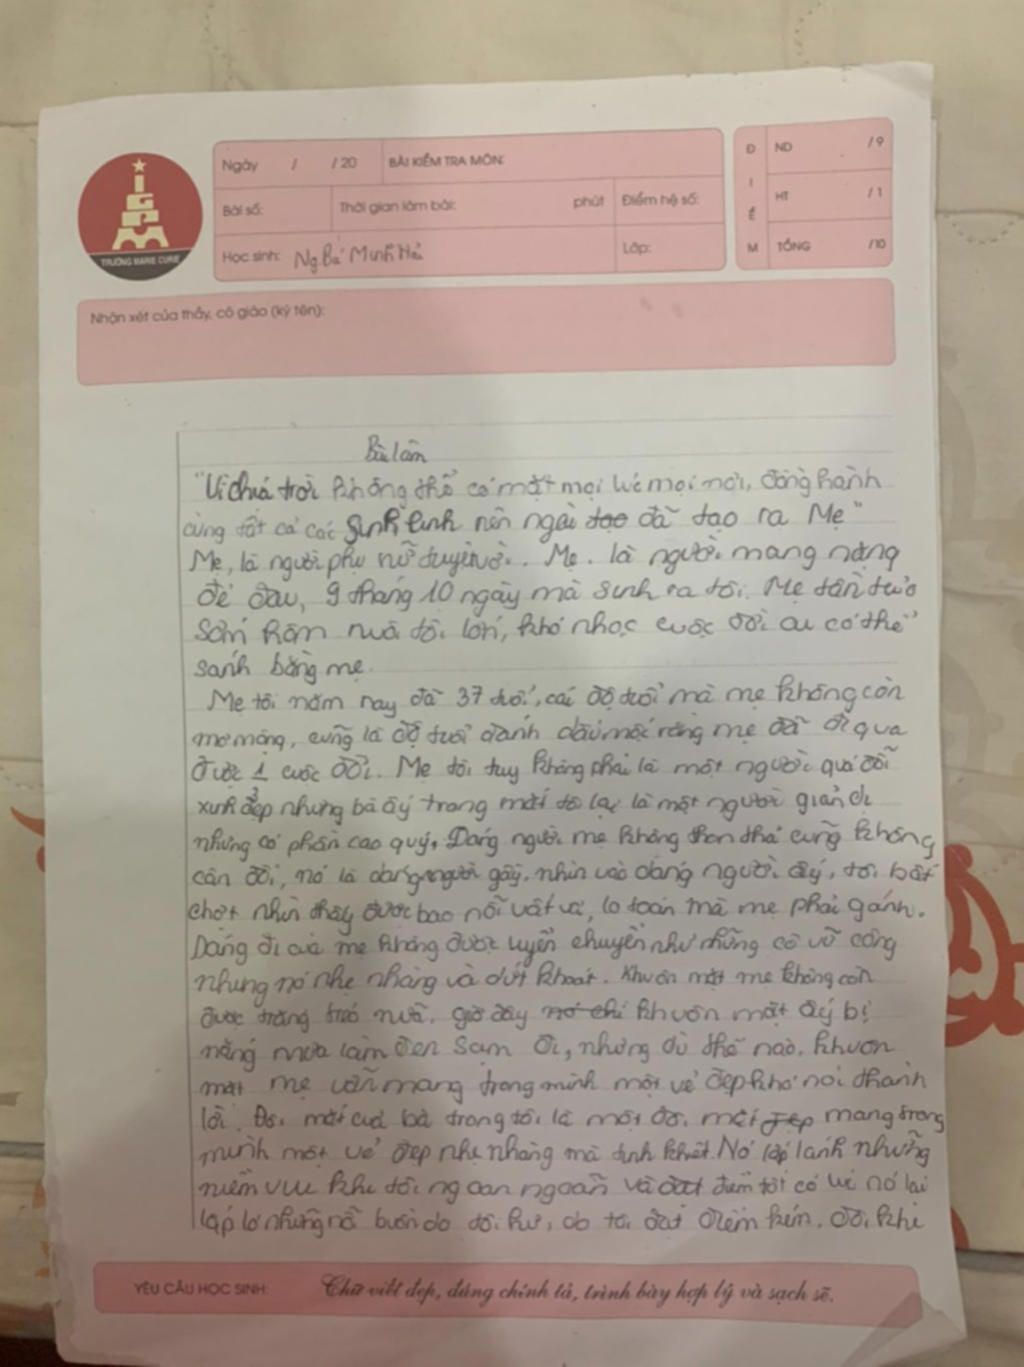 Ngày / / 20 BÀI KIỂM TRA MÔN:
Bài số: Thời gian làm bài: phút Điểm hệ số:
Học sinh: Ng Bá Minh Hải Lớp:
ĐIỂM
ND /9
HT /1
TỔNG /10
TRƯỜNG MARIE CURIE
Nhận xét của thầy, cô giáo (ký tên):
Bài làm
"Vì chúa trời không thể có mặt mọi lúc mọi nơi, đồng hành
cùng tất cả các sinh linh nên ngài tạo đã tạo ra Mẹ"
Mẹ, là người phụ nữ tuyệt vời. Mẹ. là người mang nặng
đẻ đau, 9 tháng 10 ngày mà sinh ra tôi. Mẹ tần tảo
sớm hôm nuôi tôi lớn, khó nhọc cuộc đời ai có thể
sánh bằng mẹ.
Mẹ tôi năm nay đã 37 tuổi, cái độ tuổi mà mẹ không còn
mơ mộng, cũng là độ tuổi đánh dấu mốc rằng mẹ đã đi qua
được cuộc đời. Mẹ tôi tuy không phải là một người quá đỗi
xinh đẹp nhưng bà ấy trong mắt tôi lại là một người giản dị
nhưng có phần cao quý. Dáng người mẹ không thon thả cũng không
cân đối, nó là dáng người gầy. nhìn vào dáng người ấy, tôi bất
chợt nhìn thấy được bao nỗi vất vả, lo toan mà mẹ phải gánh.
Dáng đi của mẹ không được uyển chuyển như những cô vũ công
nhưng nó nhẹ nhàng và dứt khoát. Khuôn mặt mẹ không còn
được trắng trẻo nữa. giờ đây nó chỉ khuôn mặt ấy bị
nắng mưa làm đen sạm đi, nhưng dù thế nào, khuôn
mặt mẹ vẫn mang trong mình một vẻ đẹp khó nói thành
lời. Đôi mắt của bà trong tôi là một đôi mắt đẹp mang trong
mình một vẻ đẹp nhẹ nhàng mà tinh khiết. Nó lấp lánh những
niềm vui khi tôi ngoan ngoãn và đạt điểm tốt có lúc nó lại
lấp ló những nỗi buồn do tôi hư, do tôi đạt điểm kém. đôi khi
YÊU CẦU HỌC SINH: Chữ viết đẹp, đúng chính tả, trình bày hợp lý và sạch sẽ.